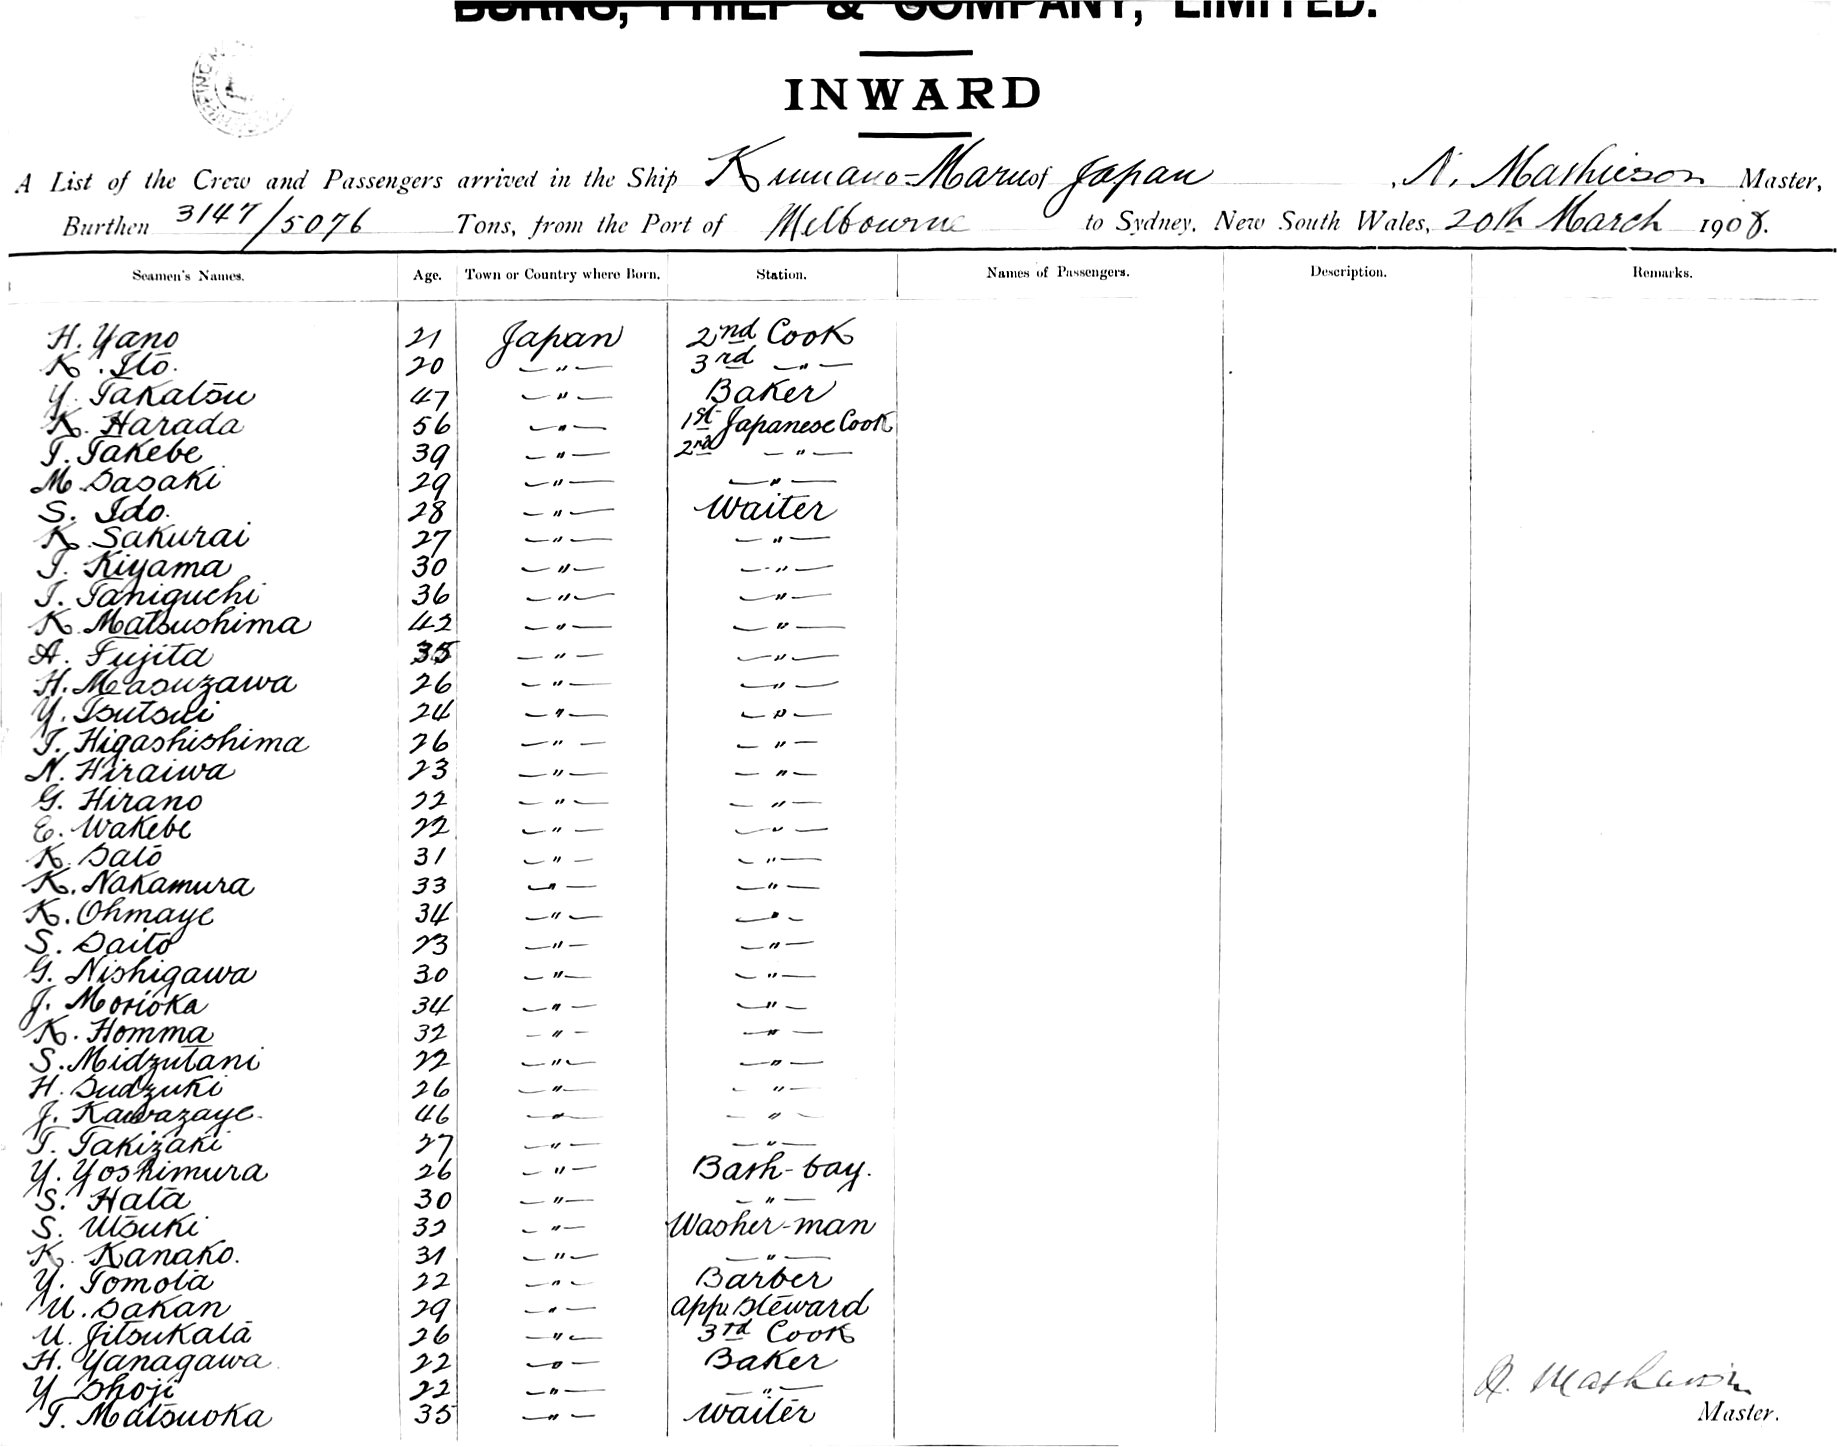 BURNS, PHILP & COMPANY, LIMITED.
INWARD
A List of the Crew and Passengers arrived in the Ship Kumano-Maru of Japan, N. Mathieson Master,
Burthen 3147/5076 Tons, from the Port of Melbourne to Sydney, New South Wales, 20th March 1908.
Seamen's Names. Age. Town or Country where Born. Station. Names of Passengers. Description. Remarks.
H. Yano 21 Japan 2nd Cook
K. Itō. 20 — " — 3rd — " —
Y. Takatsu 47 — " — Baker
K. Harada 56 — " — 1st Japanese Cook
T. Takebe 39 — " — 2nd — " —
M Sasaki 29 — " — — " —
S. Ido. 28 — " — Waiter
K. Sakurai 27 — " — — " —
T. Kiyama 30 — " — — " —
T. Taniguchi 36 — " — — " —
K. Matsushima 42 — " — — " —
A. Fujita 35 — " — — " —
H. Masuzawa 26 — " — — " —
Y. Tsutsui 24 — " — — " —
T. Higashishima 26 — " — — " —
N. Hiraiwa 23 — " — — " —
G. Hirano 22 — " — — " —
E. Wakebe 22 — " — — " —
K. Satō 31 — " — — " —
K. Nakamura 33 — " — — " —
K. Ohmaye 34 — " — — " —
S. Saitō 23 — " — — " —
G. Nishigawa 30 — " — — " —
J. Morioka 34 — " — — " —
K. Homma 32 — " — — " —
S. Midzutani 22 — " — — " —
H. Sudzuki 26 — " — — " —
J. Kawazaye. 46 — " — — " —
T. Takizaki 27 — " — — " —
Y. Yoshimura 26 — " — Bath-boy.
S. Hata 30 — " — — " —
S. Utsuki 32 — " — Washer-man
K. Kanako. 31 — " — — " —
Y. Tomota 22 — " — Barber
U. Sakan 29 — " — Steward
U. Jitsukata 26 — " — 3rd Cook
H. Yanagawa 22 — " — Baker
Y Shoji 22 — " — — " —
T. Matsuoka 35 — " — Waiter
Mathieson
Master.